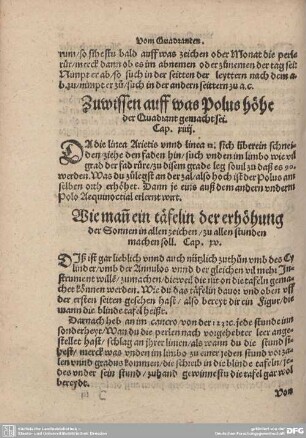 Vom Quadranten.
rum/so sihestu bald auff was zeichen oder Monat die perle
rür/merck dann ob es im abnemen oder zůnemen der tag sei
Nimpt er ab/so such in der seitten der leyttern nach dem a-
b.a4/nimpt er zů/such in der andern seitten zu a.c.
Zuwissen auff was Polus höhe
der Quadrant gemacht sei.
Cap. xiiij.
DA die linea Arietis vnnd linea n. sich überein schnei-
den/ziehe den faden hin/such vnden im limbo wie vil
grad der fad rüre/zu disem grade leg souil zu daß es 90.
werden. Was du zůlegst an der zal/also hoch ist der Polus am
selben orth erhöhet. Dann je eins auß dem andern vnderm
Polo Aequinoctial erlernt wirt.
Wie mañ ein täfelin der erhöhung
der Sonnen in allen zeichen/zu allen stunden
machen soll. Cap. xv.
DIß ist gar lieblich vnnd auch nützlich zuthůn vmb des Cy
linder/vmb der Annulos vnnd der gleichen vil mehr In-
strument willē/zumachen/dieweil die nur on die tafeln gema-
chet können werden. Wie du das täfelin dauor vnd oben vff
der ersten seiten gesehen hast/also bereyt dir ein Figur/die
mann die blinde tafel heißt.
Darnach heb an im cancro von der 12 zeic. jede stunde inn
sonderheyt/Wan du die perlen nach vorgehebter leer ange-
stellet hast/schlag an ihrer linien/als wann du die stund si-
hest/merck was vnden im limbo zu einer jeden stund vor za-
len vnnd gradus kommen/die schreib in die blinde tafeln/je-
des vnder sein stund/zuhand gewinnestu die tafel gar wol
bereyde.
Von